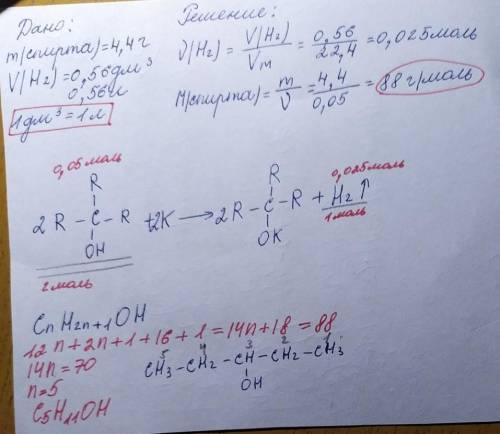 Дано:
m(спирта)=4,4г
V(H₂)=0,56дм³
0,56л
1дм³=1л
Решение:
ν(H₂)=V(H₂)/Vm=0,56/22,4=0,025моль
M(спирта)=m/ν=4,4/0,05=88г/моль
0,05моль
R
2R-C-R+2K→2R-C-R+H₂↑
OH
2моль
R
OK
0,025моль
1моль
CnH2n+1OH
12n+2n+1+16+1=14n+18=88
14n=70
n=5
C₅H₁₁OH
5 4 3 2 1
CH₃-CH₂-CH-CH₂-CH₃
OH